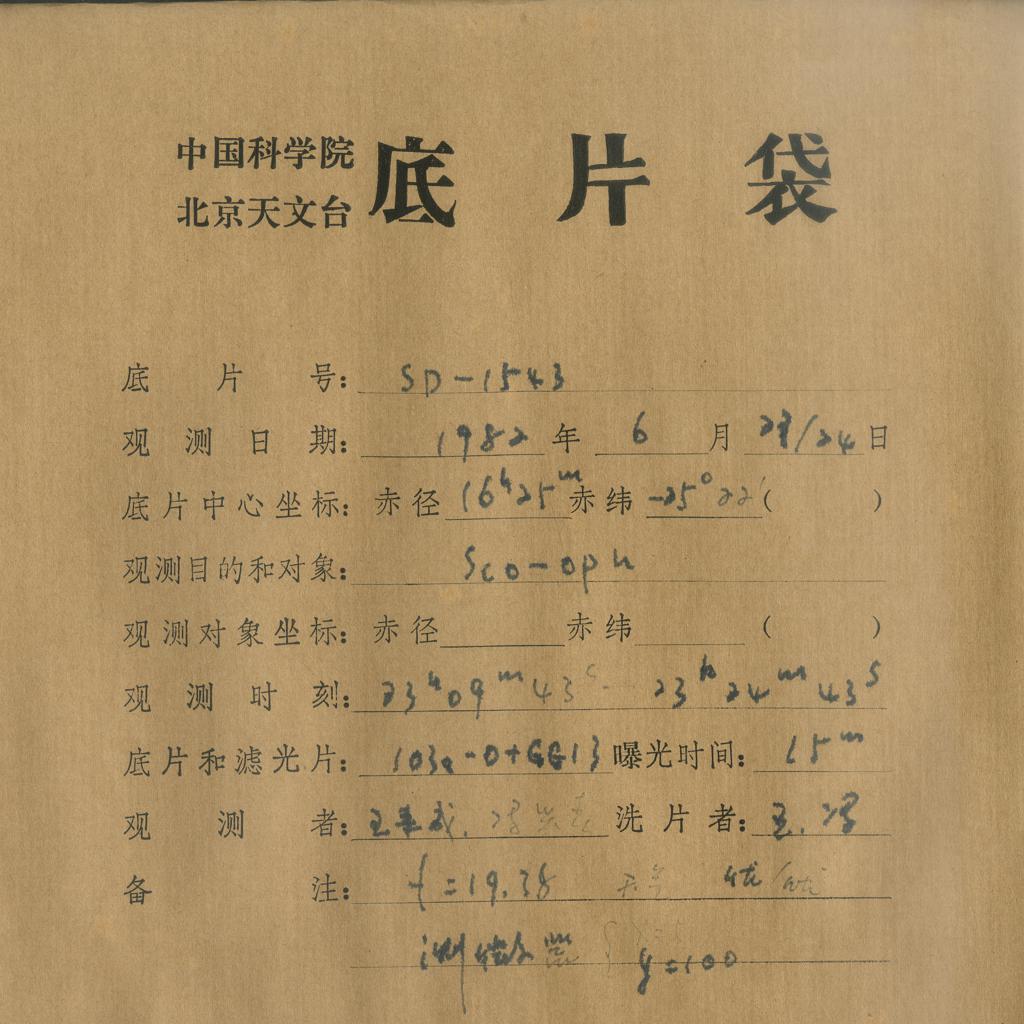 中国科学院
北京天文台
底片袋
底片号: SD-1543
观测日期: 1982年6月23/24日
底片中心坐标: 赤径 16h25m 赤纬 -25°22′( )
观测目的和对象: Sco-oph
观测对象坐标: 赤径 赤纬 ( )
观测时刻: 23h09m43s- 23h24m43s
底片和滤光片: 103a-O+GG13 曝光时间: 15m
观测者: 王 洗片者: 王.冯
备注: f=19.38 优/优
测微器 y=100